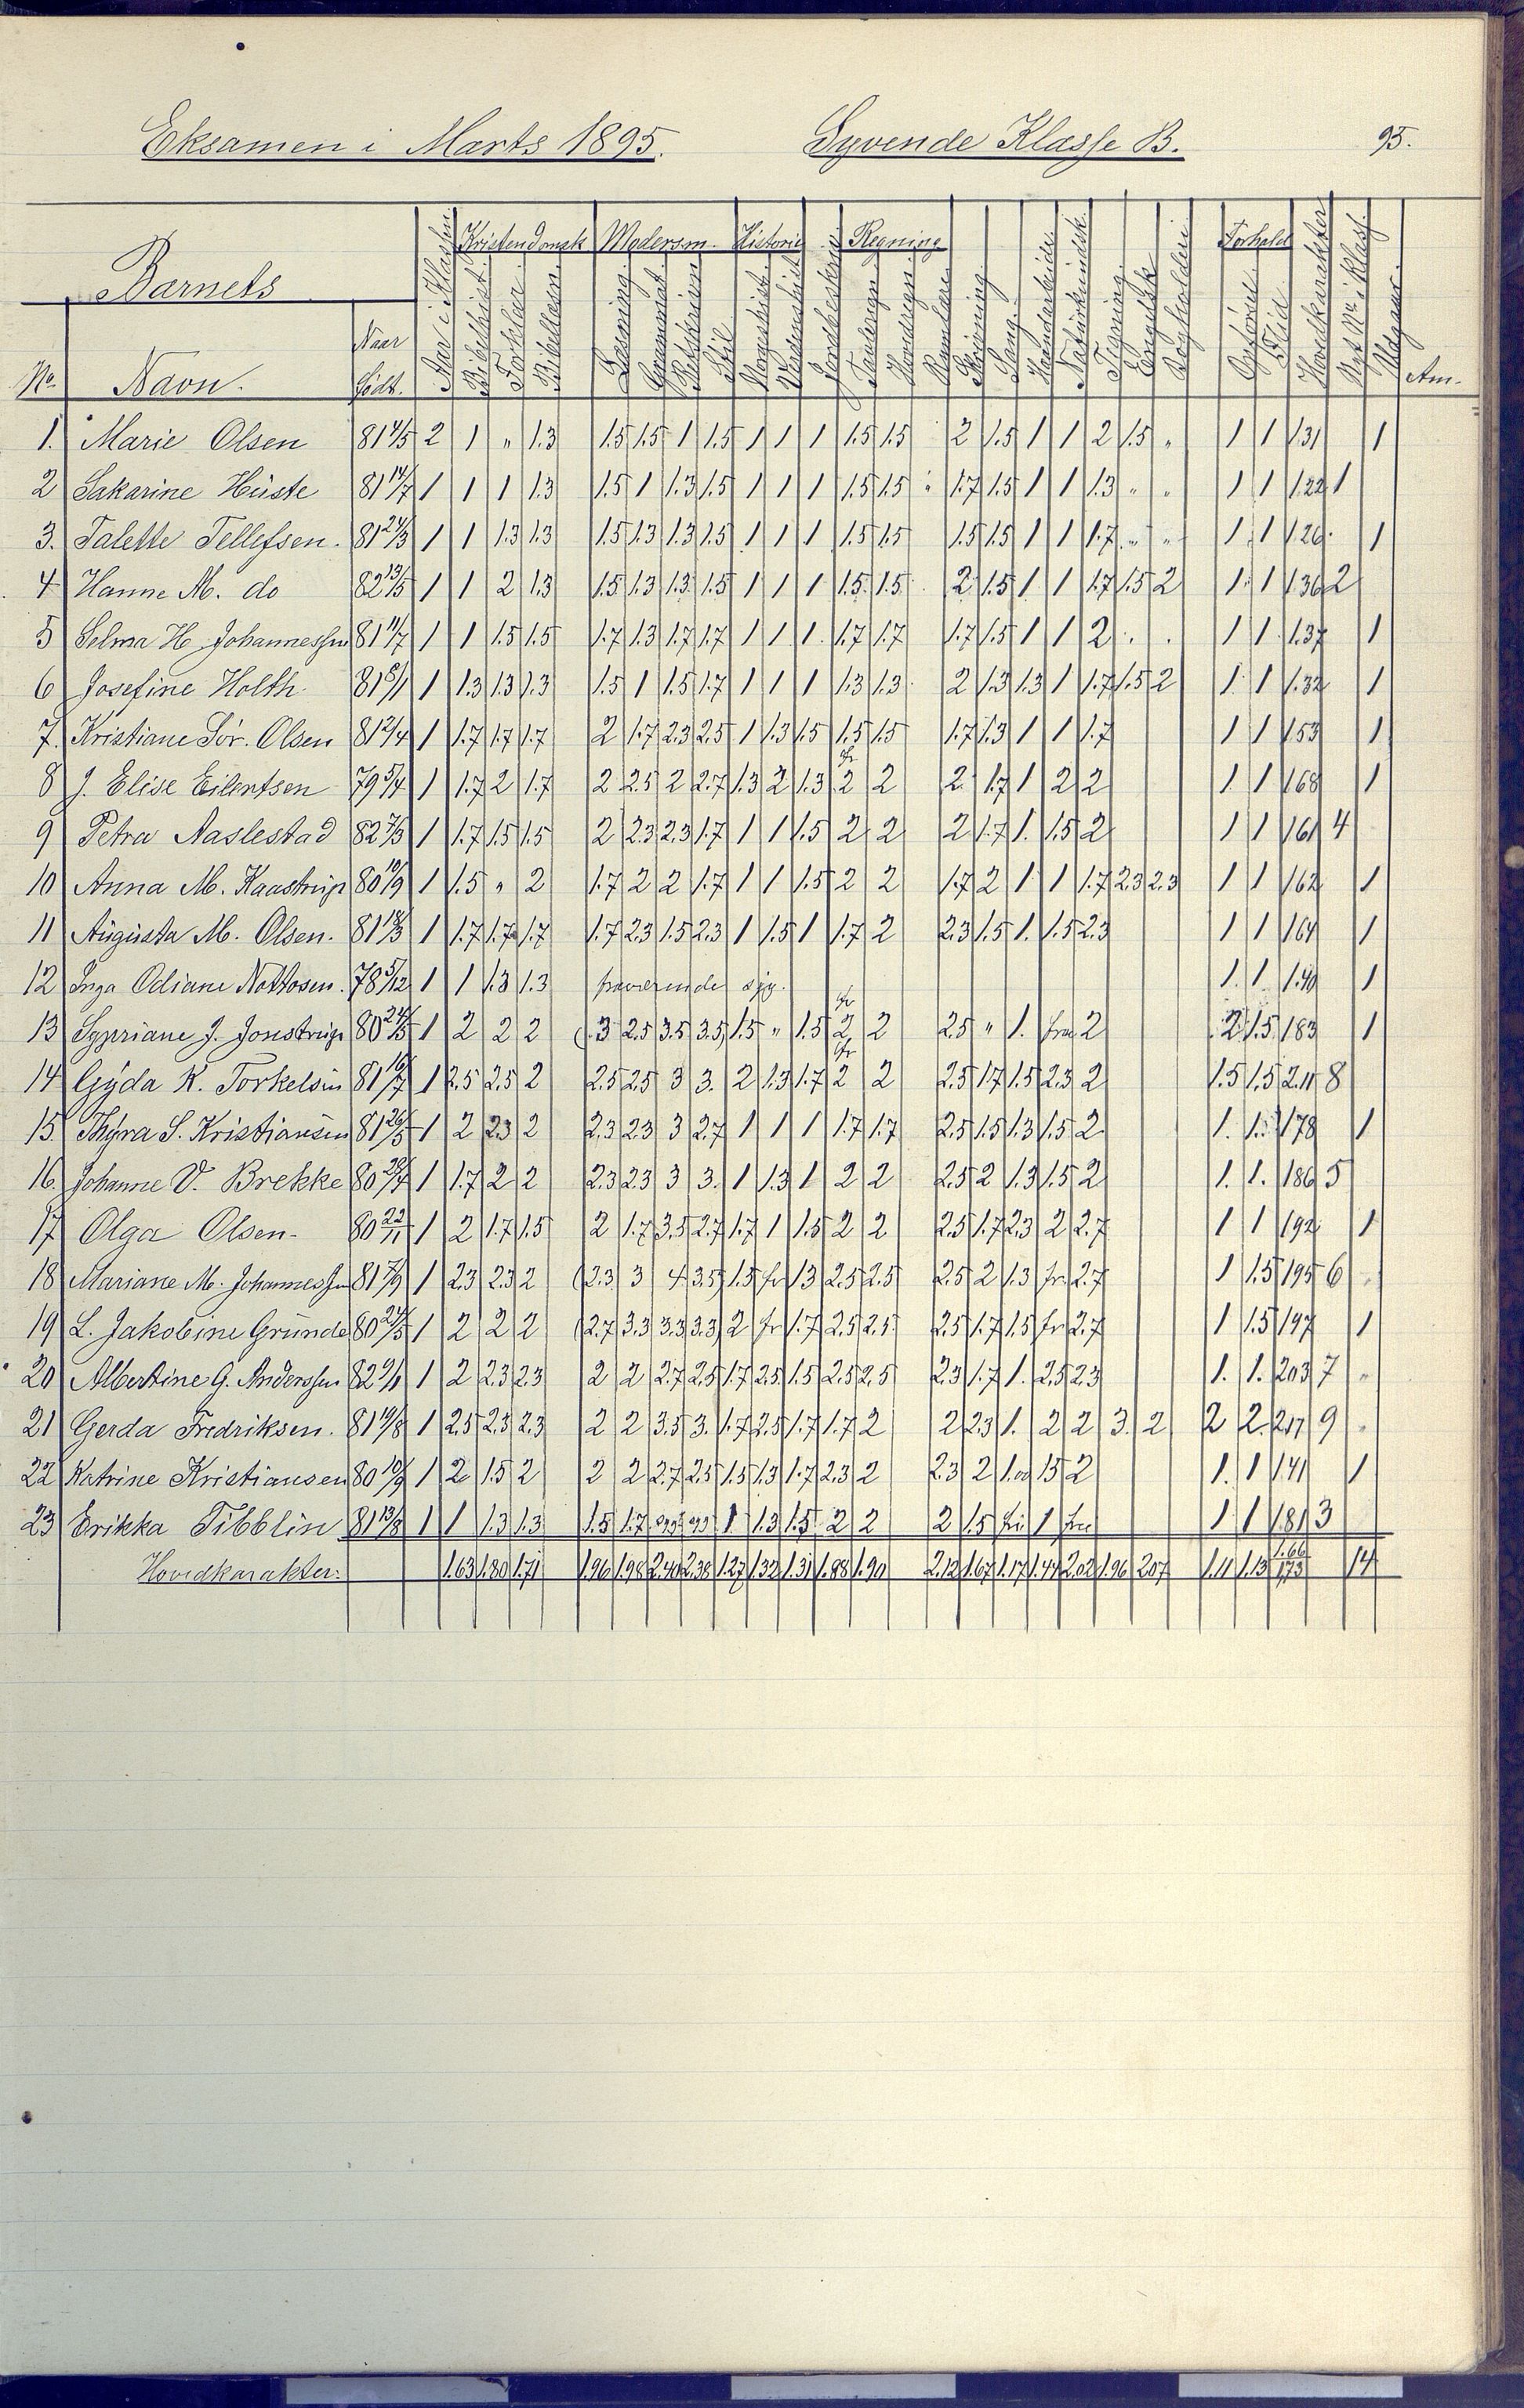 Eksamen i Marts 1895. Syvende Klasse B. 95.
Barnets Aar i Klassen Kristendomsk Modersm. Historie Regning Forhold
No. Navn. Naar Født. Bibelhist. Forklar. Bibellæsn. Læsning Grammat. Retskrivn. Stil Norgeshist. Verdenshist. Jordbeskriv. Tavleregn. Hovedregn. Rumlære Skrivning Sang. Haandarbeide. Naturkundsk. Tegning Engelsk Bogholderi Opførsel Flid Hovedkarakter Nyt No. i Klass. Udgaar. Am.
1. Marie Olsen 81 4/5 2 1 " 1.3 1.5 1.5 1 1.5 1 1 1 1.5 1.5 2 1.5 1 1 2 1.5 " 1 1 1.31 1
2 Sakarine Heiste 81 14/7 1 1 1 1.3 1.5 1 1.3 1.5 1 1 1 1.5 1.5 " 1.7 1.5 1 1 1.3 " " 1 1 1.22 1
3. Talette Tellefsen. 81 24/3 1 1 1.3 1.3 1.5 1.3 1.3 1.5 1 1 1 1.5 1.5 1.5 1.5 1 1 1.7 " " 1 1 1.26 1
4 Hanne M. do 82 13/5 1 1 2 1.3 1.5 1.3 1.3 1.5 1 1 1 1.5 1.5 2 1.5 1 1 1.7 1.5 2 1 1 1.36 2
5 Selma H. Johannessen 81 11/7 1 1 1.5 1.5 1.7 1.3 1.7 1.7 1 1 1 1.7 1.7 1.7 1.5 1 1 2 . . 1 1 1.37 1
6 Josefine Holth 81 6/1 1 1.3 1.3 1.3 1.5 1 1.5 1.7 1 1 1 1.3 1.3 2 1.3 1.3 1 1.7 1.5 2 1 1 1.32 1
7. Kristiane Sör. Olsen 81 2/4 1 1.7 1.7 1.7 2 1.7 2.3 2.5 1 1.3 1.5 1.5 1.5 1.7 1.3 1 1 1.7 1 1 1.53 1
8 J. Elise Eilertsen 79 5/4 1 1.7 2 1.7 2 2.5 2 2.7 1.3 2 1.3 fr 2 2 2 1.7 1 2 2 1 1 1.68 1
9 Petra Naslestad 82 7/3 1 1.7 1.5 1.5 2 2.3 2.3 1.7 1 1 1.5 2 2 2 1.7 1. 1.5 2 1 1 1.61 4
10 Anna M. Kaastrup 80 10/9 1 1.5 " 2 1.7 2 2 1.7 1 1 1.5 2 2 1.7 2 1 1 1.7 2.3 2.3 1 1 1.62 1
11 Augusta M. Olsen. 81 18/3 1 1.7 1.7 1.7 1.7 2.3 1.5 2.3 1 1.5 1 1.7 2 2.3 1.5 1. 1.5 2.3 1 1 1.64 1
12 Inga Odiane Nottosen. 78 5/12 1 1 1.3 1.3 fraværende syg. 1. 1. 1.40 1
13 Sypriane J. Jonstrup 80 24/5 1 2 2 2 (3 2.5 3.5 3.5) 1.5 " 1.5 fr 2 2 2.5 " 1. fra 2 2 1.5 1.83 1
14 Gyda K. Torkelsen 81 16/7 1 2.5 2.5 2 2.5 2.5 3 3. 2 1.3 1.7 fr 2 2 2.5 1.7 1.5 2.3 2 1.5 1.5 2.11 8
15. Thyra S. Kristiansen 81 26/5 1 2 2.3 2 2.3 2.3 3 2.7 1 1 1 1.7 1.7 2.5 1.5 1.3 1.5 2 1. 1. 1.78 1
16. Johanne V. Brekke 80 28/7 1 1.7 2 2 2.3 2.3 3 3. 1 1.3 1 2 2 2.5 2 1.3 1.5 2 1. 1. 1.86 5
17 Olga Olsen 80 22/11 1 2 1.7 1.5 2 1.7 3.5 2.7 1.7 1 1.5 2 2 2.5 1.7 2.3 2 2.7 1 1 1.92 1
18 Mariane M. Johannessen 81 7/9 1 2.3 2.3 2 (2.3 3 4 3.5) 1.5 fr 1.3 2.5 2.5 2.5 2 1.3 fr. 2.7 1 1.5 1.95 6
19 L. Jakobine Grunde 80 24/5 1 2 2 2 (2.7 3.3 3.3 3.3) 2 fr 1.7 2.5 2.5 2.5 1.7 1.5 fr 2.7 1 1.5 1.97 1
20 Albertine G. Anderssen 82 9/1 1 2 2.3 2.3 2 2 2.7 2.5 1.7 2.5 1.5 2.5 2.5 2.3 1.7 1. 2.5 2.3 1. 1. 2.03 7 "
21 Gerda Fredriksen. 81 10/8 1 2.5 2.3 2.3 2 2 3.5 3. 1.7 2.5 1.7 1.7 2 2 2.3 1. 2 2 3. 2 2 2. 2.17 9 "
22 Katrine Kristiansen 80 19/9 1 2 1.5 2 2 2 2.7 2.5 1.5 1.3 1.7 2.3 2 2.3 2 1.00 1.5 2 1. 1 1.41 1
23 Erikka Tibblin 81 13/8 1 1 1.3 1.3 1.5 1.7 1 1.3 1.5 2 2 2 1.5 fri 1 fra 1 1 1.81 3
Hovedkarakter: 1.63 1.80 1.71 1.96 1.98 2.40 2.38 1.27 1.32 1.31 1.88 1.90 2.12 1.67 1.17 1.44 2.02 1.96 2.07 1.11 1.13 1.66 1.73 14